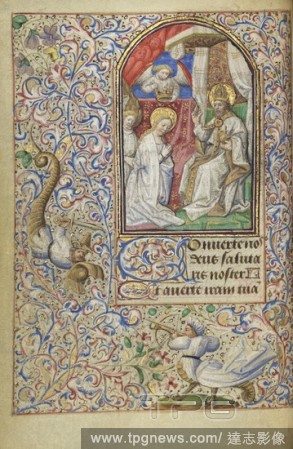 Converte no
deus saluta
ris noster Et
t averte iram tua
TPG
www.tpgnews.com / 達志影像